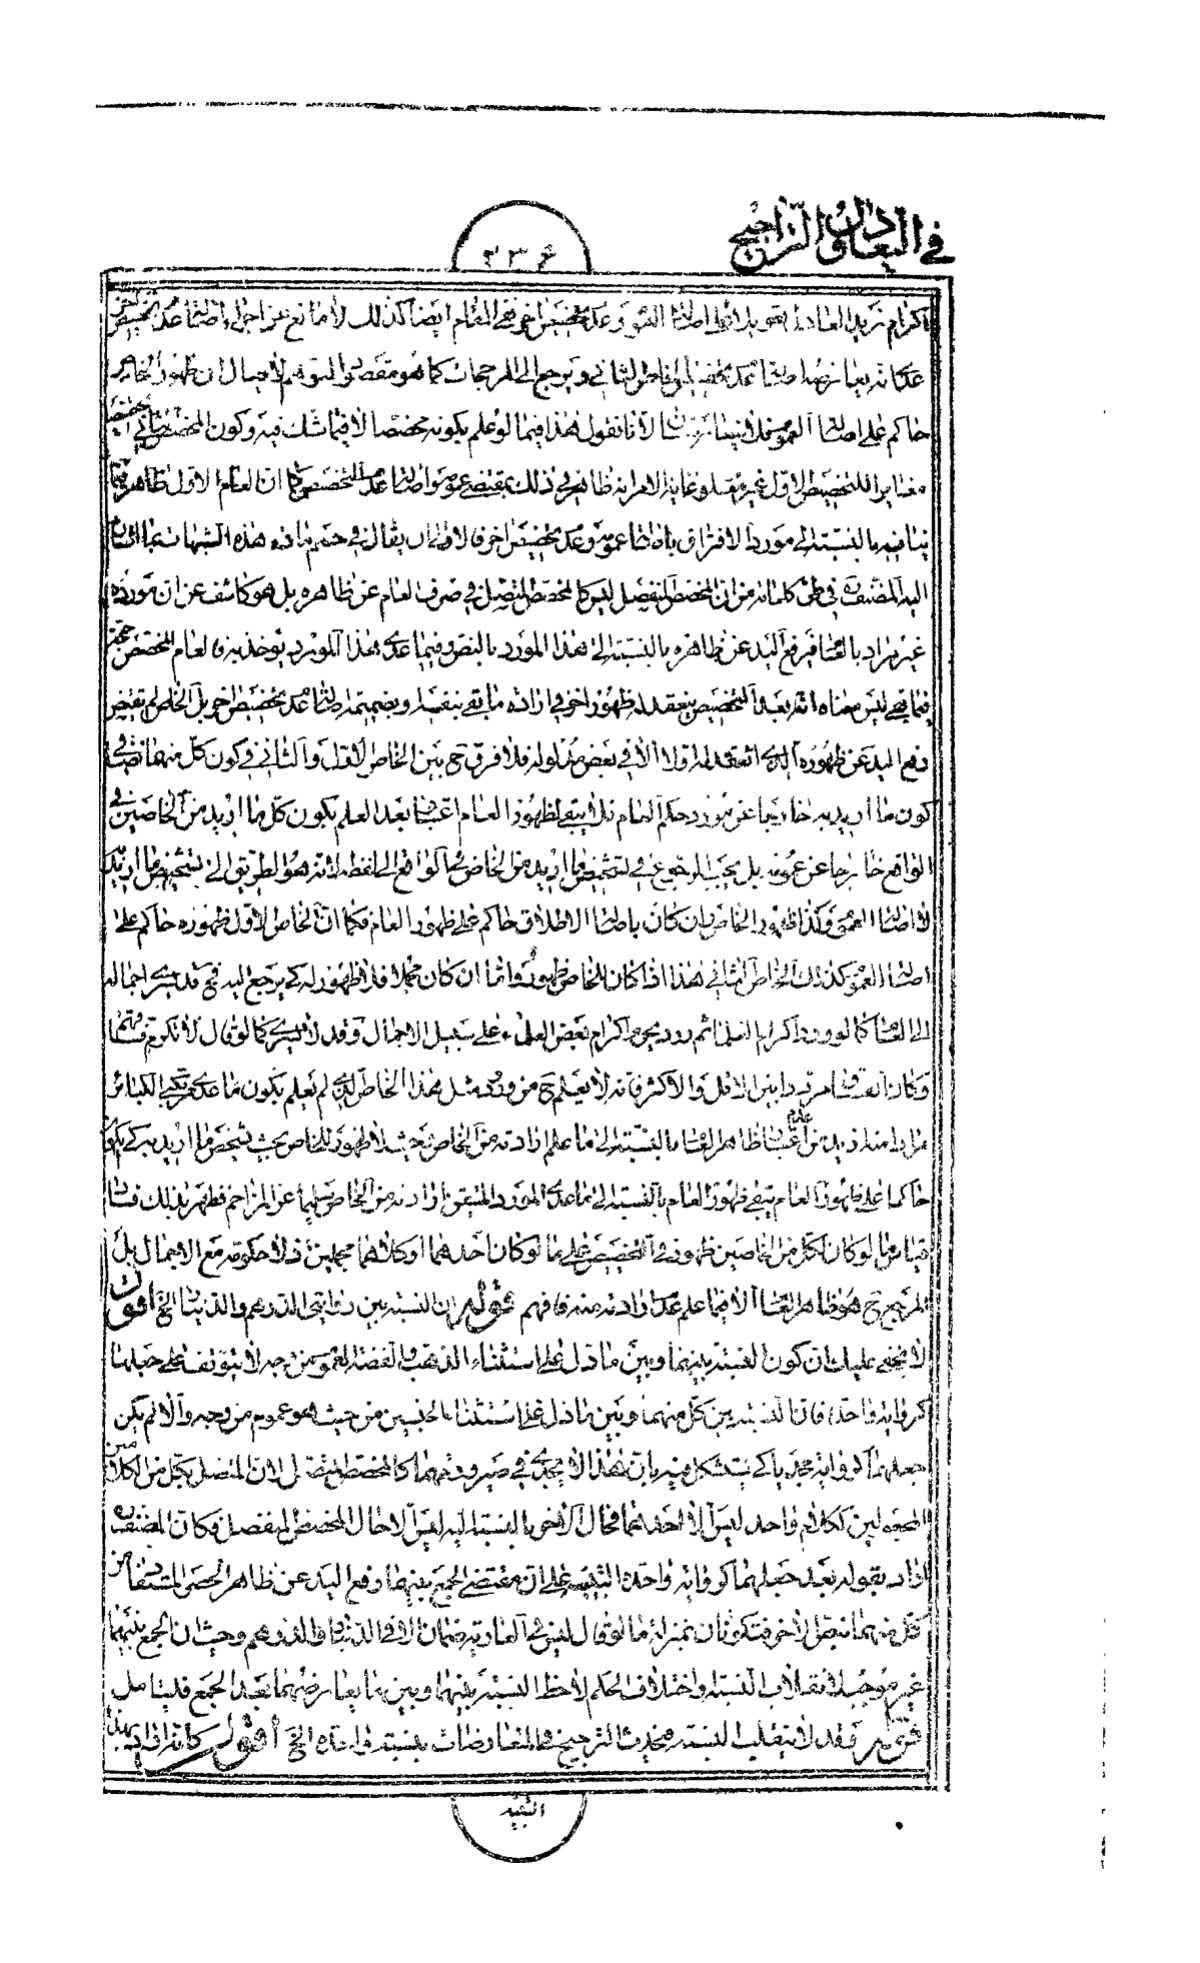 في التعادل والتراجيح
٢٣۶
اكرام زيد العادل بقوله لا اصالة العموم وعدم مخصص اخر ففي المقام ايضا كذلك لا مانع عن اجراء اصالة عدم تخصيص اخر
عدا انه يعارضها اصالة عدم تخصيص بالخاص الثاني ويرجع الى المرجحات كما هو مقتضى التوهم لا يقال ان ظهور الخاص
حاكم على اصالة العموم فلا يعارضه لانا نقول هذا فيما لو علم بكونه مخصصا لا فيما شك فيه وكون المخصص الثاني
مغايرا للتخصيص الاول غير وغاية الامر انه ظاهر في ذلك بمقتضى عمومه واصالة عدم التخصيص كما ان العام الاول ظاهر فيما
ينافيه بالنسبة الى مورد الافتراق باصالة عمومه وعدم تخصيص اخر فالاولى ان يقال في حسم مادة هذه الشبهات بما اشار
اليه المصنف ره في طي كلماته من ان المخصص المنفصل ليس كالمخصص المتصل في صرف العام عن ظاهره بل هو كاشف عن ان مورده
غير مراد بالعام فيرفع اليد عن ظاهره بالنسبة الى هذا المورد بالنص وفيما عدى هذا المورد يؤخذ به فالعام المخصص حجة
فيما بقي ليس معناه انه بعد التخصيص ينعقد له ظهور اخر في ارادة ما بقي بنفسه وبضميمة اصالة عدم تخصيص اخر بل الخاص لم يقتض
رفع اليد عن ظهوره الذي انعقد له اولا الا في بعض مدلوله فلا فرق ح بين الخاص الاول والثاني في كون كل منهما نصا في
كون ما اريد به خارجا عن مورد حكم العام فلا يبقى لظهور العام اعتبار بعد العلم بكون كل ما اريد من الخاصين في
الواقع خارجا عن عمومه بل يجب الرجوع في تشخيص ما اريد من الخاص في الواقع الى لفظه لانه هو الطريق الى تشخيص ما اريد
لا اصالة العموم وكذا ظهور الخاص وان كان باصالة الاطلاق حاكم على ظهور العام فكما ان الخاص الاول ظهوره حاكم على
اصالة العموم كذلك الخاص الثاني هذا اذا كان للخاص ظهور واما ان كان مجملا فلا ظهور له كي يرجع اليه فح قد يسري اجماله
الى العام كما لو ورد اكرم العلماء ثم ورد يحرم اكرام بعض العلماء على سبيل الاجمال وقد لا يسري كما لو قال لا تكرم فساقهم
وكان الفسق امره مرددا بين الاقل والاكثر فانه لا يعلم ح من ورود مثل هذا الخاص الذي لم يعلم بكون ما عدى مرتكب الكبائر
مرادا منه ازيد من عدم اعتبار ظاهر العام بالنسبة الى ما علم ارادته من الخاص وحيث لا ظهور للخاص بحيث يشخص ما اريد به كي يكون
حاكما على ظهور العام يبقى ظهور العام بالنسبة الى ما عدى المورد المتيقن ارادته من الخاص سليما عن المزاحم فظهر بذلك فساد
قياس ما لو كان لكل من الخاصين ظهور في التخصيص على ما لو كان احدهما او كلاهما مجملين اذ لا حكومة مع الاجمال بل
المرجع ح هو ظاهر العام الا فيما علم عدم ارادته منه فافهم قوله ان النسبة بين روايتي الدرهم والدينار الخ اقول
لا يخفى عليك ان كون النسبة بينهما وبين ما دل على استثناء الذهب والفضة العموم من وجه لا يتوقف على جعلهما
كرواية واحدة فان النسبة بين كل منهما وبين ما دل على استثناء الجنسين من حيث هو عموم من وجه والا لم يكن
جعلهما كرواية مجديا كي يستشكل فيه بان هذا لا يجدي في صيرورتهما كالمخصص المتصل لان المتصل بكل من الكلامين
المجعولين ككلام واحد ليس الا احدهما فحال الاخر بالنسبة اليه ليس الا حال المخصص المنفصل فكان المصنف ره
اراد بقوله بعد جعلهما كرواية واحدة التنبيه على ان مقتضى الجمع بينهما رفع اليد عن ظاهر الحصر المستفاد من
كل منهما بنص الاخر فتكونان بمنزلة ما لو قال ليس في العارية ضمان الا في الدينار والدرهم وحيث ان الجمع بينهما
غير موجب لانقلاب النسبة واختلاف الحكم لاحظ النسبة بينهما وبين ما يعارضهما بعد الجمع فليتامل
قوله وقد لا تنقلب النسبة فيحدث الترجيح في المتعارضات بنسبة واحدة الخ اقول كانه اراد بهذا
التقييد